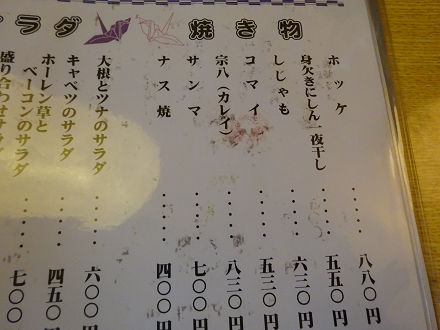 焼き物
ホッケ……八八〇円
身欠きにしん一夜干し……五五〇円
しじゃも……六三〇円
コマイ……五三〇円
宗八（カレイ）……八三〇円
サンマ……七〇〇円
ナス焼……四〇〇円
ラダ
大根とツナのサラダ……六〇〇円
キャベツのサラダ……四五〇円
ホーレン草と
ベーコンのサラダ……七〇〇
盛り合わせサ